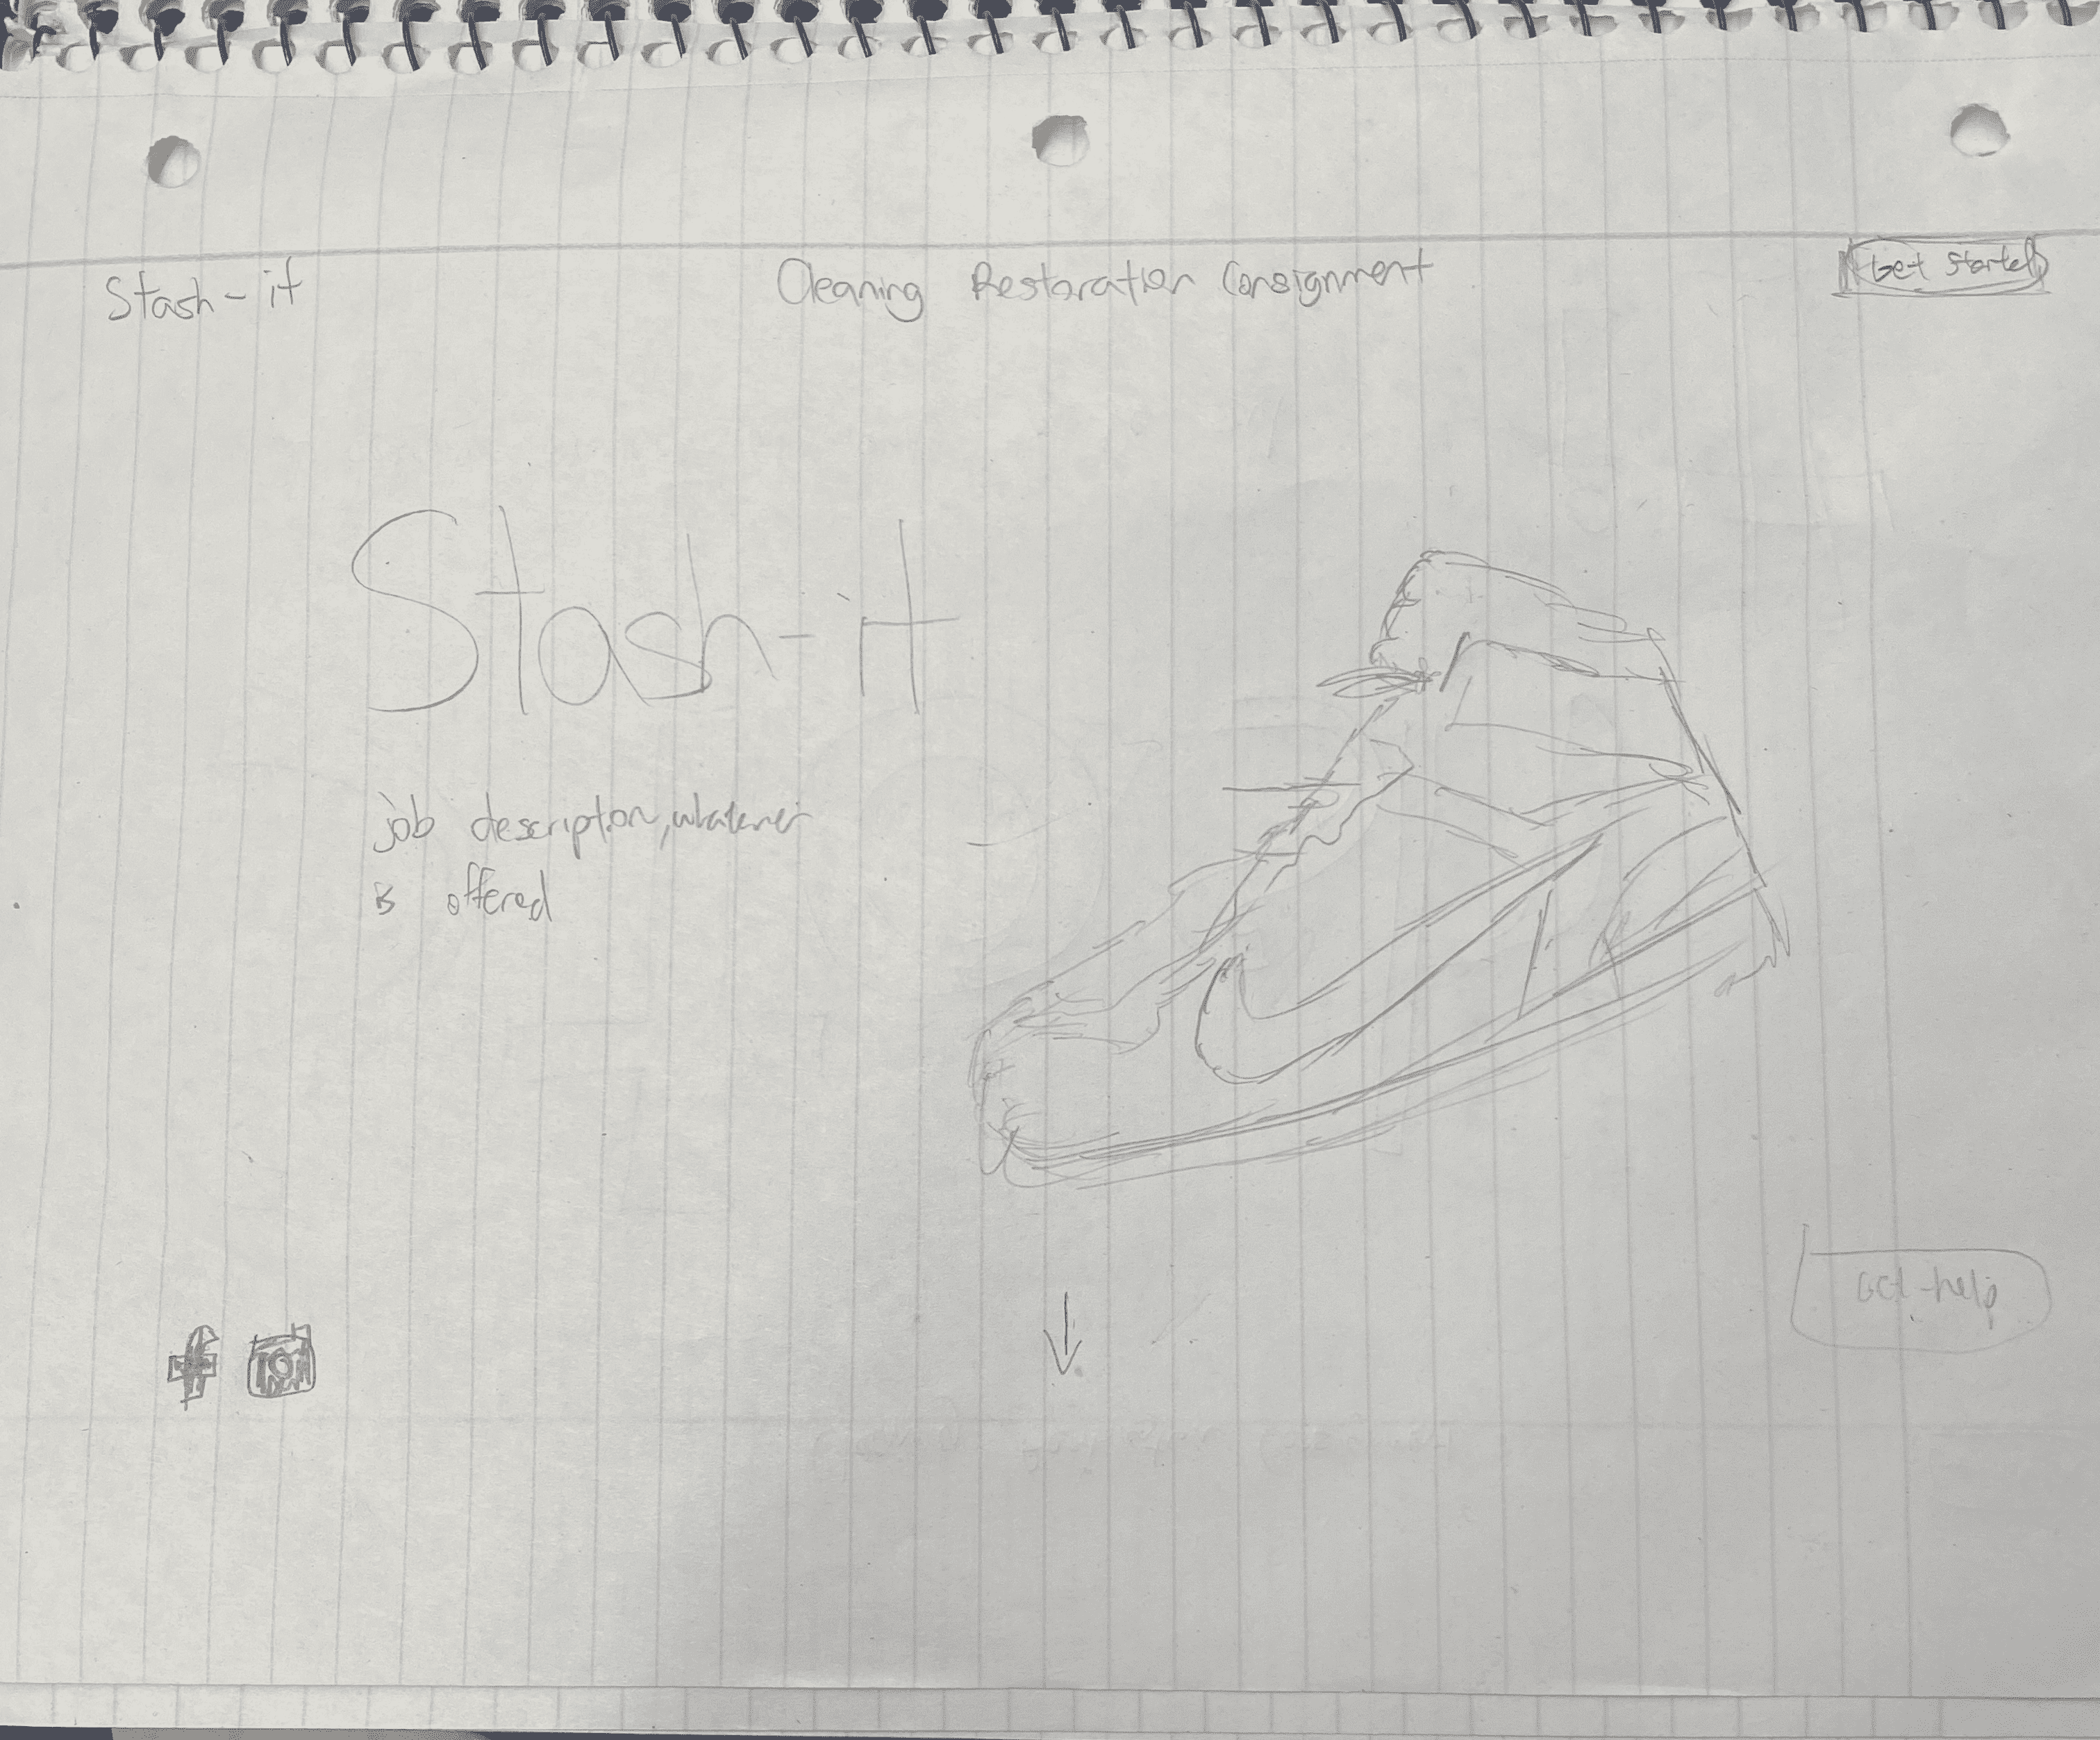 Stash-it
Cleaning Restoration Consignment
Get Started
Stash-it
job description, whatever
is offered
f
Get help